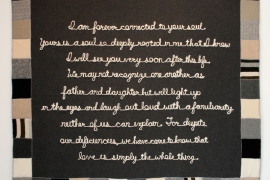 I am forever connected to your soul.
Yours is a soul so deeply rooted in me that I know
I will see you very soon after this life.
We may not recognize one another as
father and daughter but will light up
in the eyes and laugh out loud with a familiarity
neither of us can explain. For despite
our deficiencies we have come to know that
love is simply the whole thing.